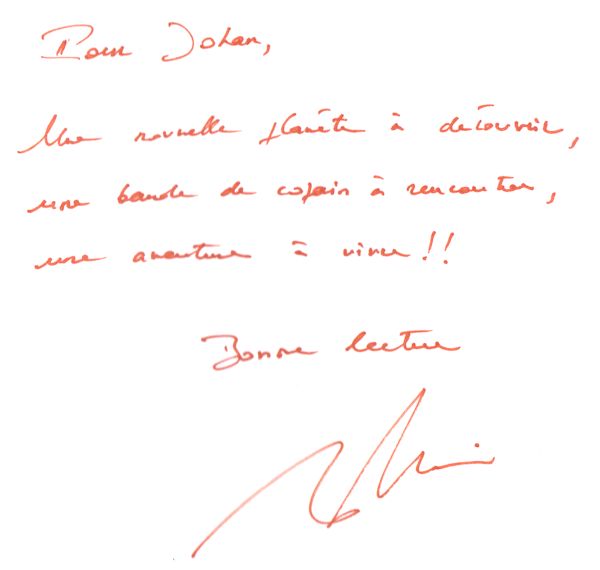 Pour Johan,
Une nouvelle planète à découvrir,
une bande de copain à rencontrer,
une aventure à vivre!!
Bonne lecture